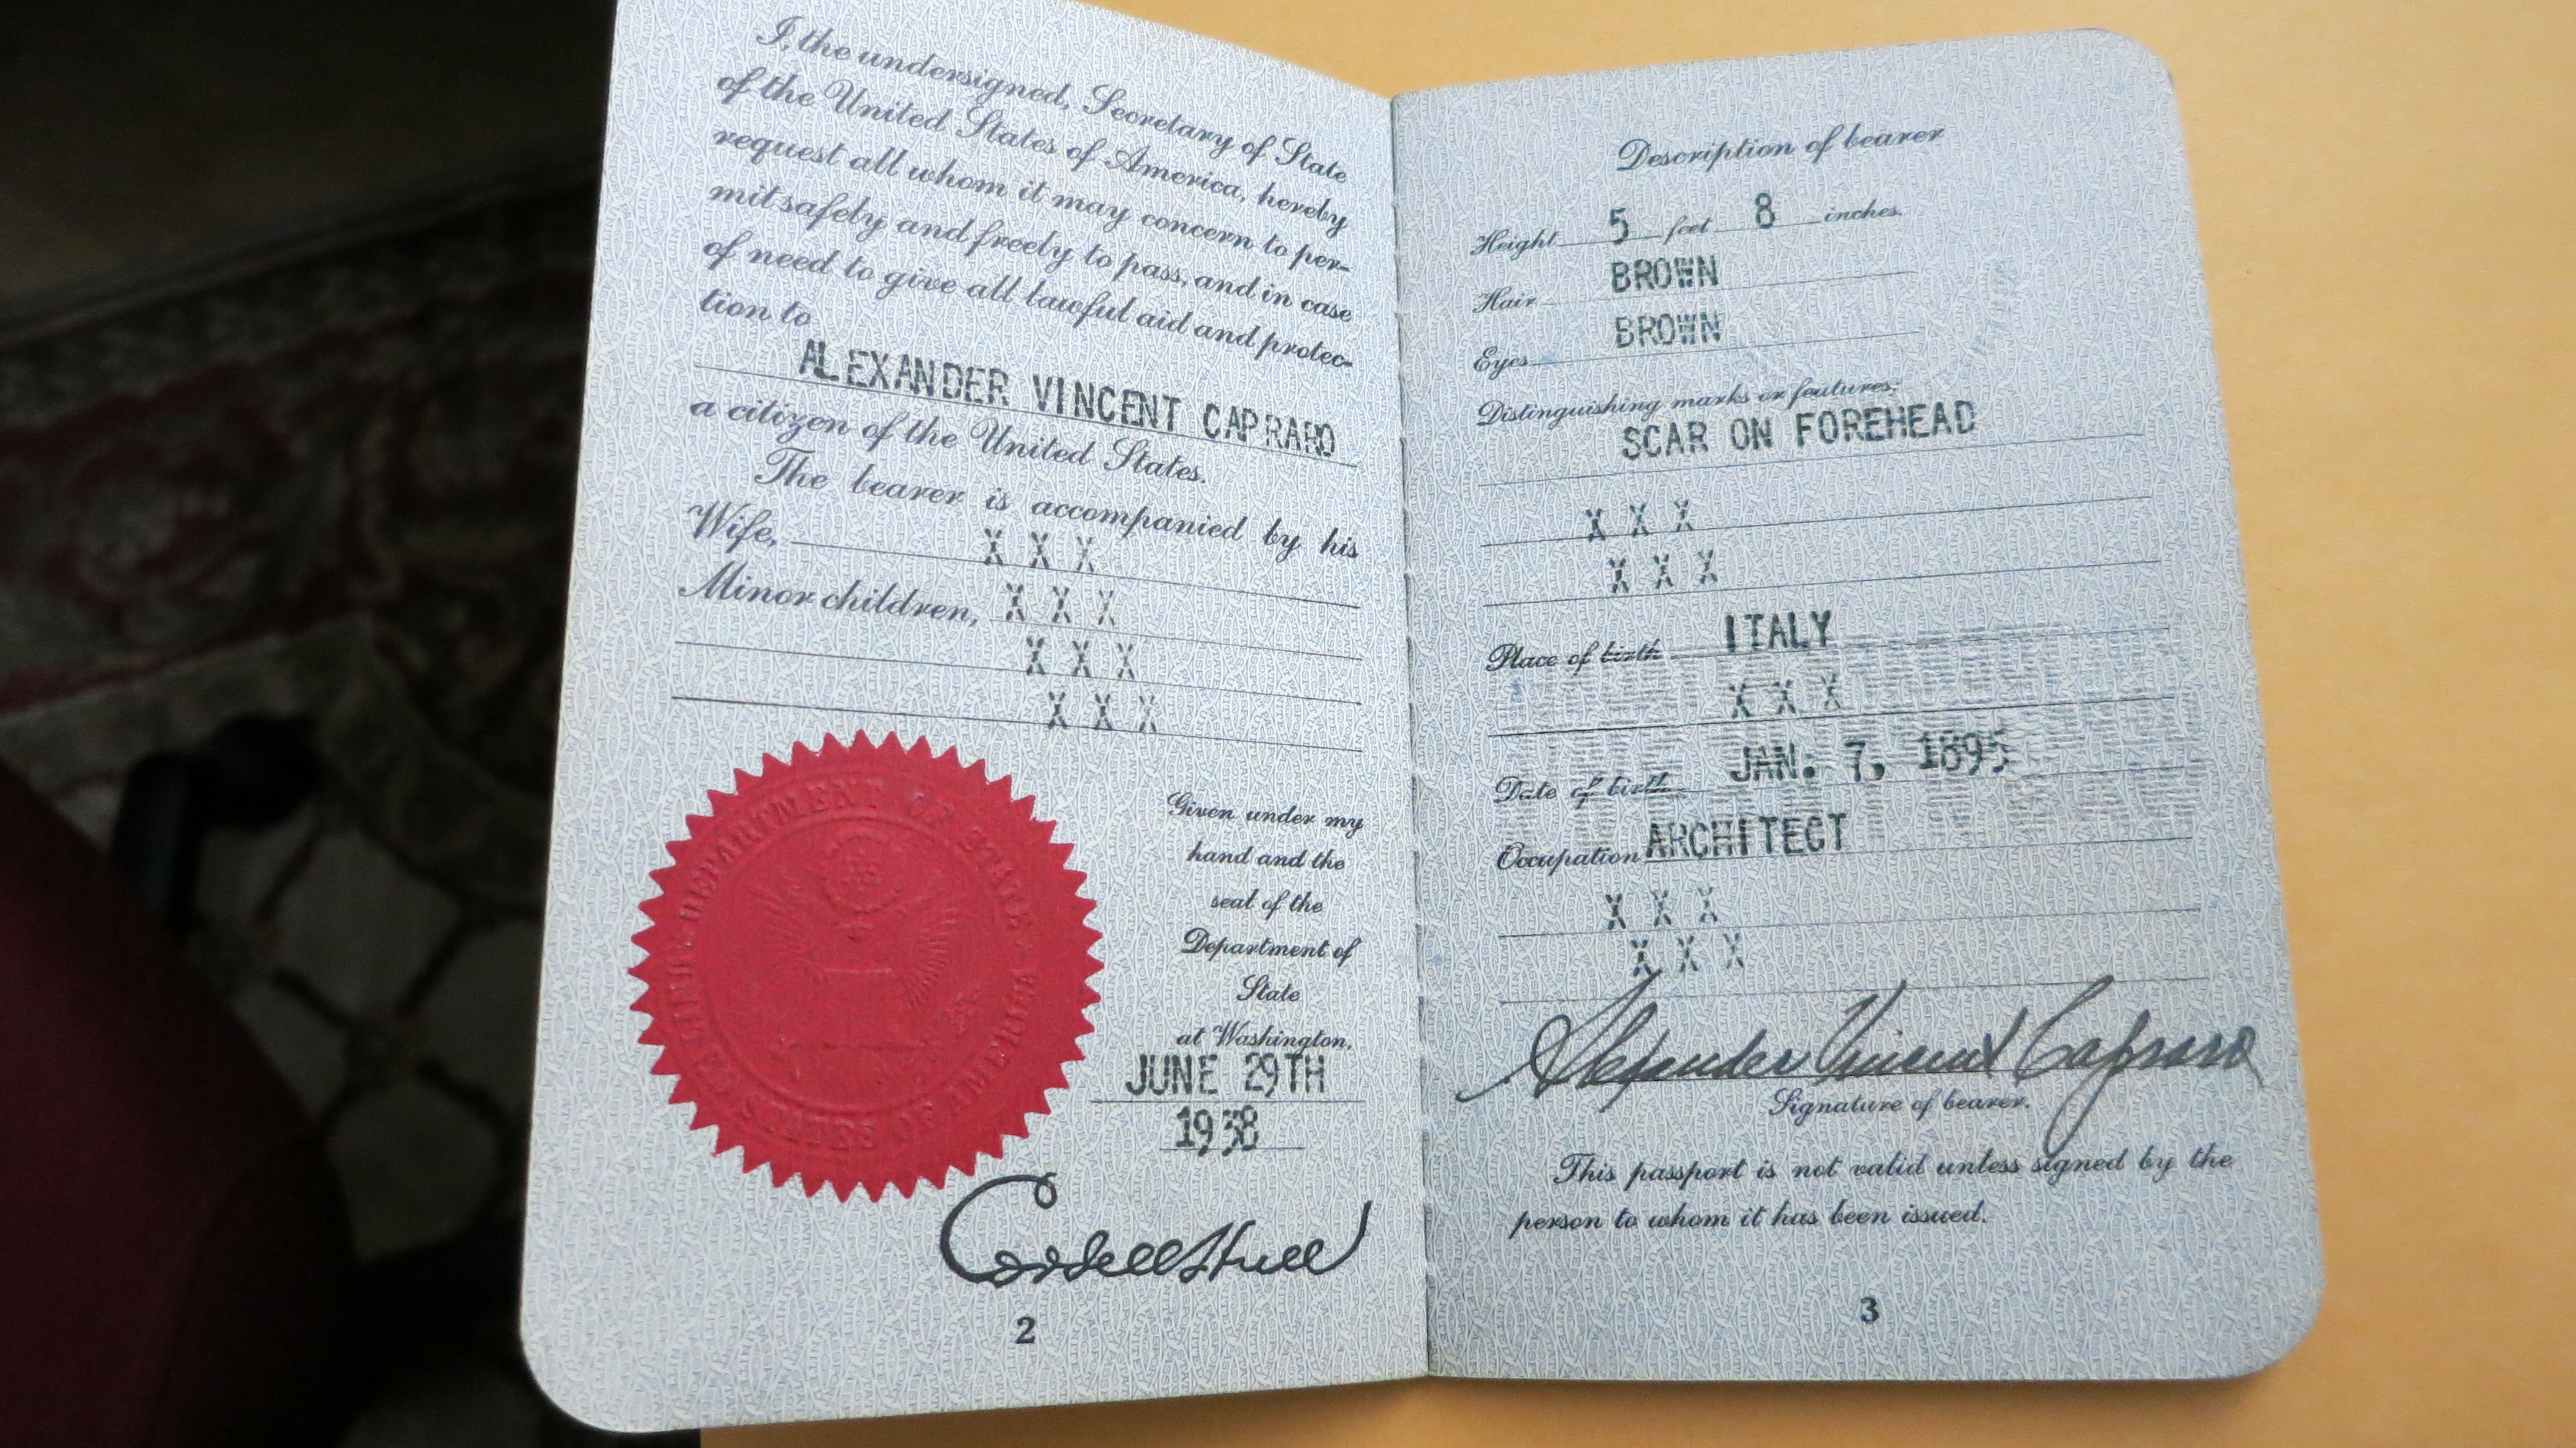 I, the undersigned, Secretary of State
of the United States of America, hereby
request all whom it may concern to per-
mit safely and freely to pass, and in case
of need to give all lawful aid and protec-
tion to
ALEXANDER VINCENT CAPRARO
a citizen of the United States.
The bearer is accompanied by his
Wife, X X X
Minor children, X X X
X X X
X X X
DEPARTMENT OF STATE
UNITED STATES OF AMERICA
Given under my
hand and the
seal of the
Department of
State
at Washington,
JUNE 29TH
1938
Cordell Hull
2
Description of bearer
Height 5 feet 8 inches.
Hair BROWN
Eyes BROWN
Distinguishing marks or features:
SCAR ON FOREHEAD
X X X
X X X
Place of birth ITALY
X X X
Date of birth JAN. 7, 1895
Occupation ARCHITECT
X X X
X X X
Alexander Vincent Capraro
Signature of bearer.
This passport is not valid unless signed by the
person to whom it has been issued.
3